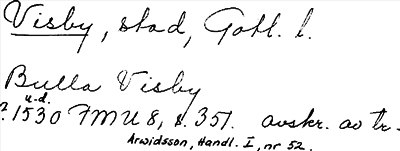 Visby, stad, Gotl. l.
Bulla Visby
u.d.
?1530 FMU 8, s. 351. avskr. av tr.
Arwidsson, Handl. I, nr 52.